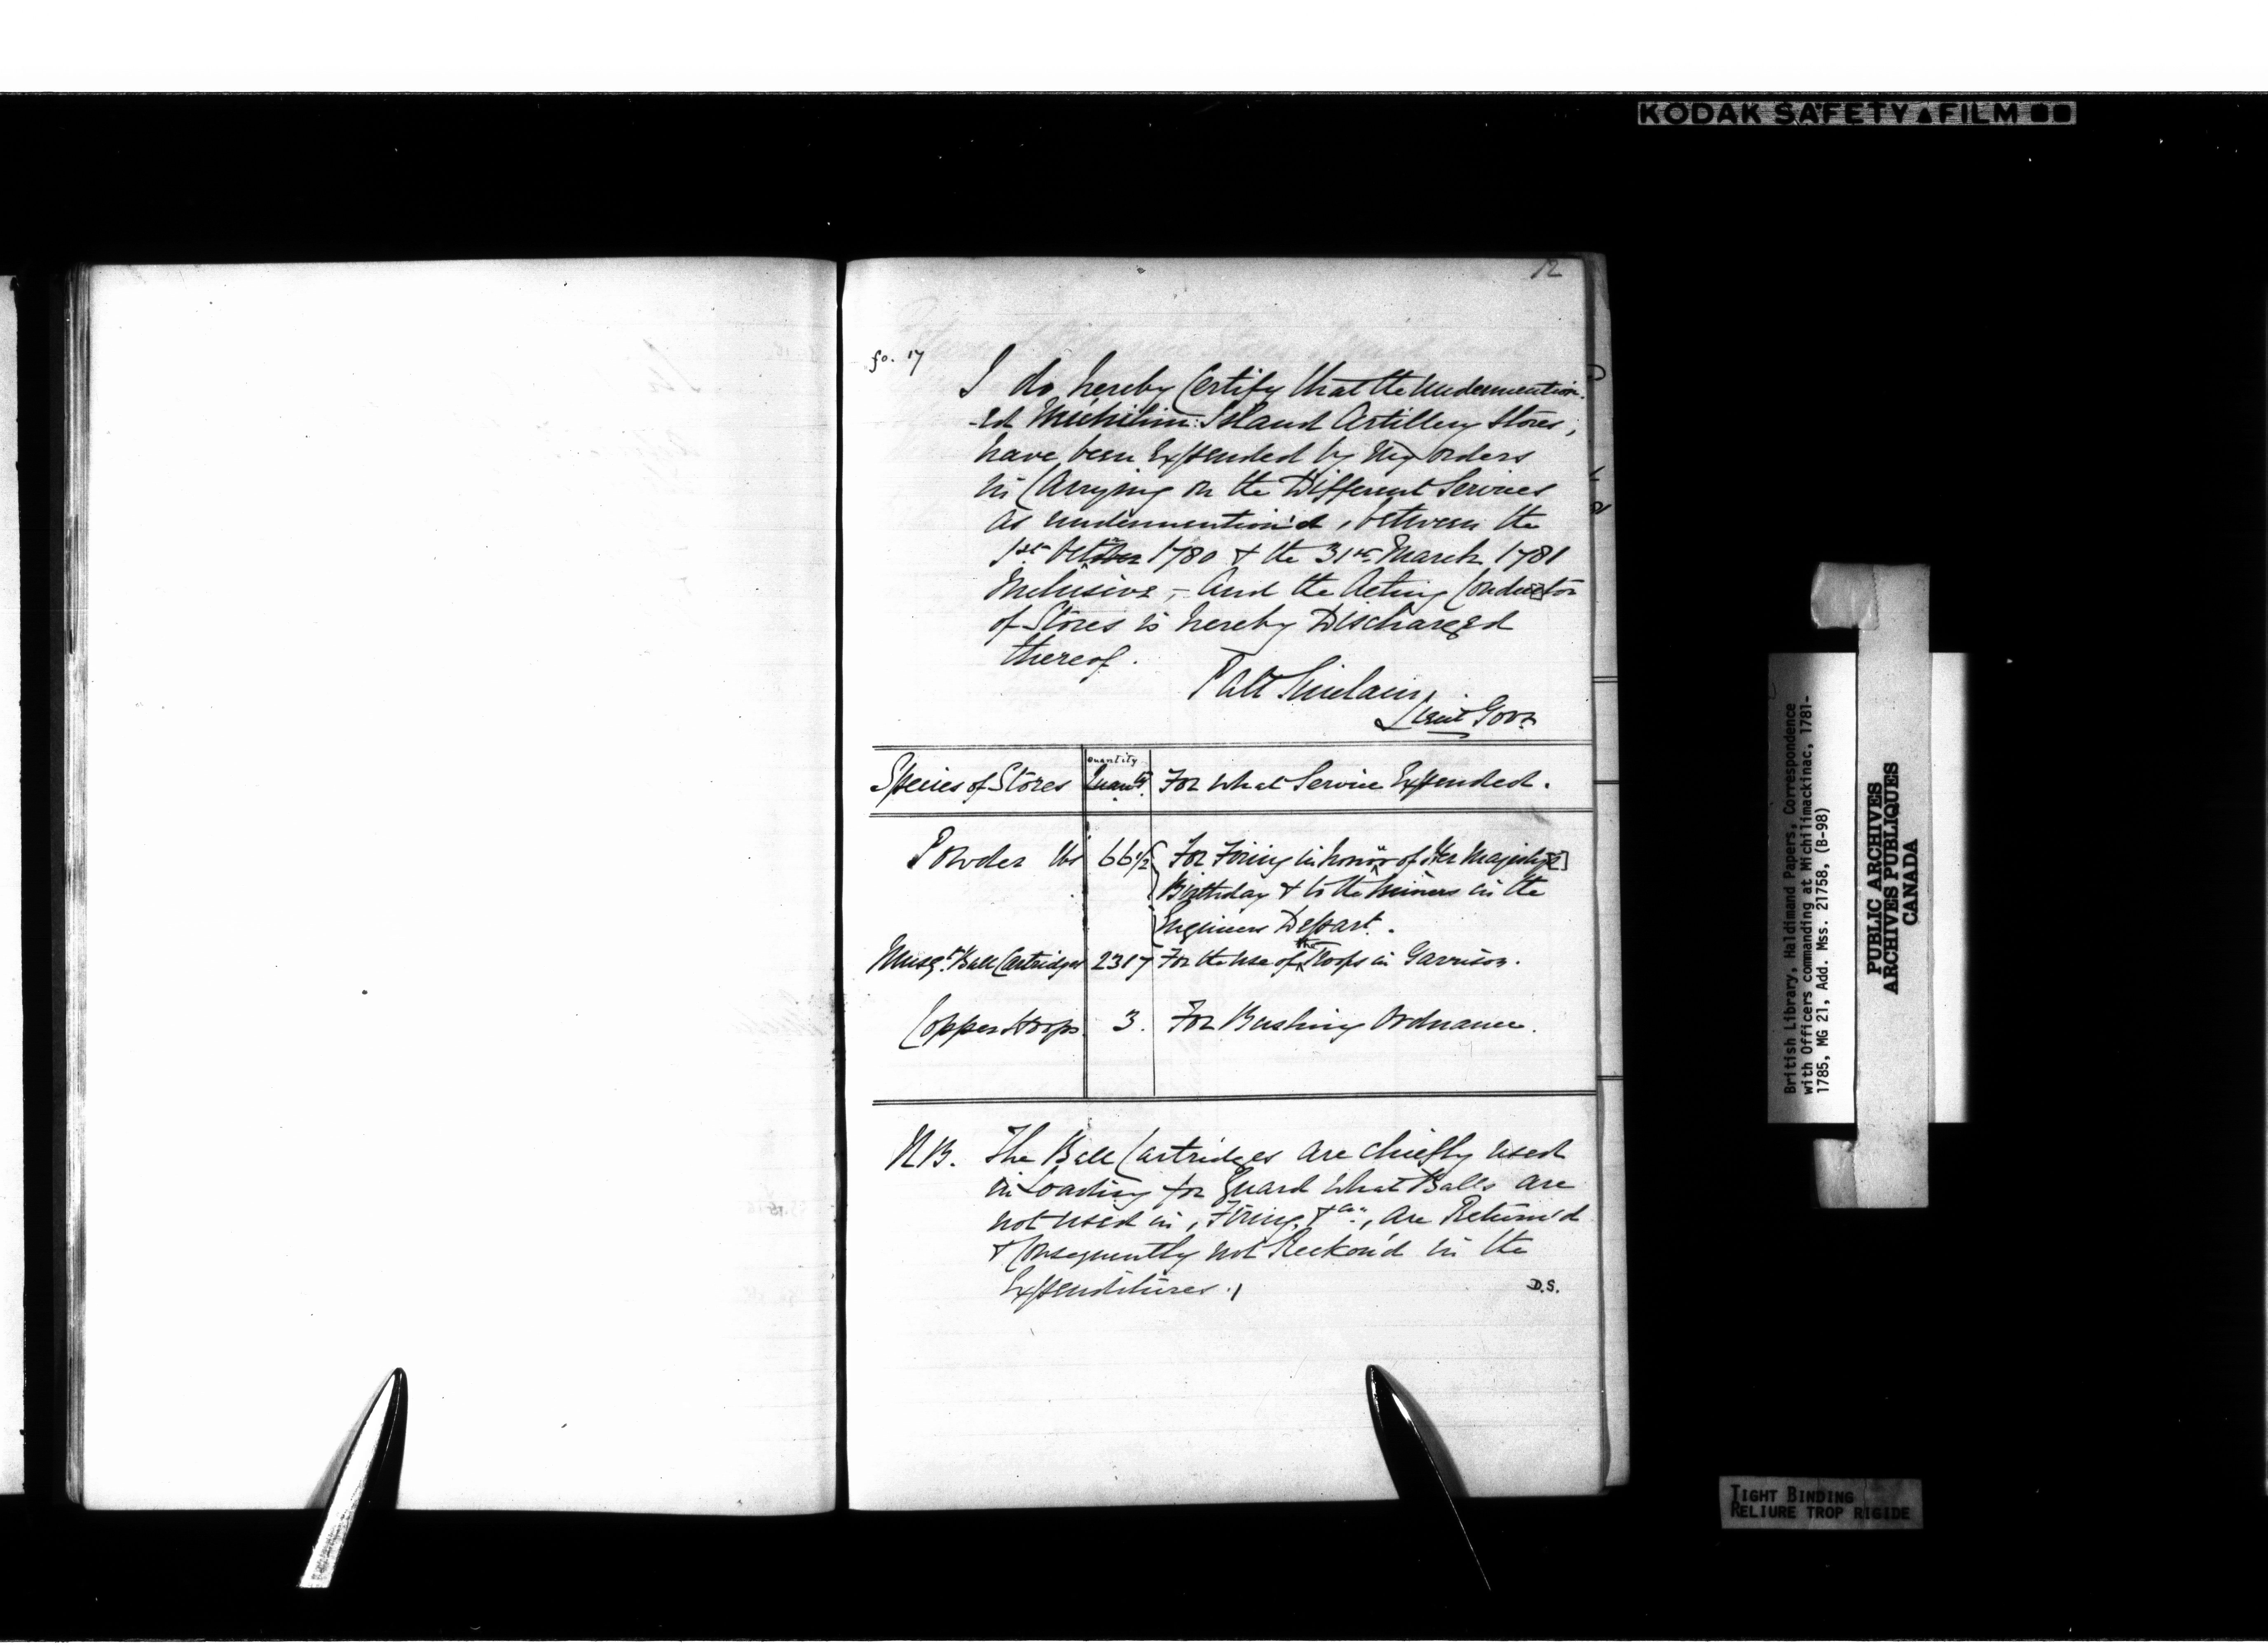 KODAK SAFETY FILM
12
fo. 17
I do hereby Certify that the Undermention-
-ed Michilim: Island Artillery Stores,
have been Expended by My orders
in Carrying on the Different Services
as undermention'd, between the
1st October 1780 & the 31st March 1781
Inclusive, - And the Acting Conductor
of Stores is hereby Discharged
thereof.
Patt Sinclair
Lieut Govr.
Species of Stores | Quantity Quanty. | For what Service Expended.
Powder lbs | 66 1/2 | For Firing in honor of Her Majesty[s]
Birthday & to the Miners in the
Engineers Depart.
Musqt. Ball Cartridges | 2317 | For the use of the Troops in Garrison.
Copper Hoops | 3. | For Bushing Ordnance.
N.B. The Ball Cartridges are chiefly used
in Loading for Guard what Balls are
not used in, Firing, &ca., are Return'd
& Consequently not Reckon'd in the
Expenditures.
D.S.
British Library, Haldimand Papers, Correspondence
with Officers commanding at Michilimackinac, 1781-
1785, MG 21, Add. Mss. 21758, (B-98)
PUBLIC ARCHIVES
ARCHIVES PUBLIQUES
CANADA
TIGHT BINDING
RELIURE TROP RIGIDE